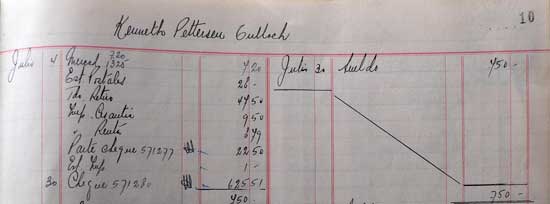 10
Kenneth Pettersen Gulloch
Julio 4 Mercad 7.20
13.25 7 20 Julio 30 Sueldo 750 -
Est Postales 28 -
Tdo Retiro 47 50
Imp. Cesantia 9 50
" Renta 6 49
Parte cheque 571277 22 50
Est Imp 1 -
30 Cheque 571280 625 51
750 - 750 -